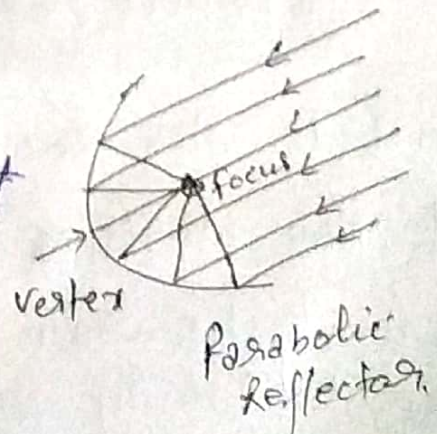 focus
vertex
Parabolic
Reflector.